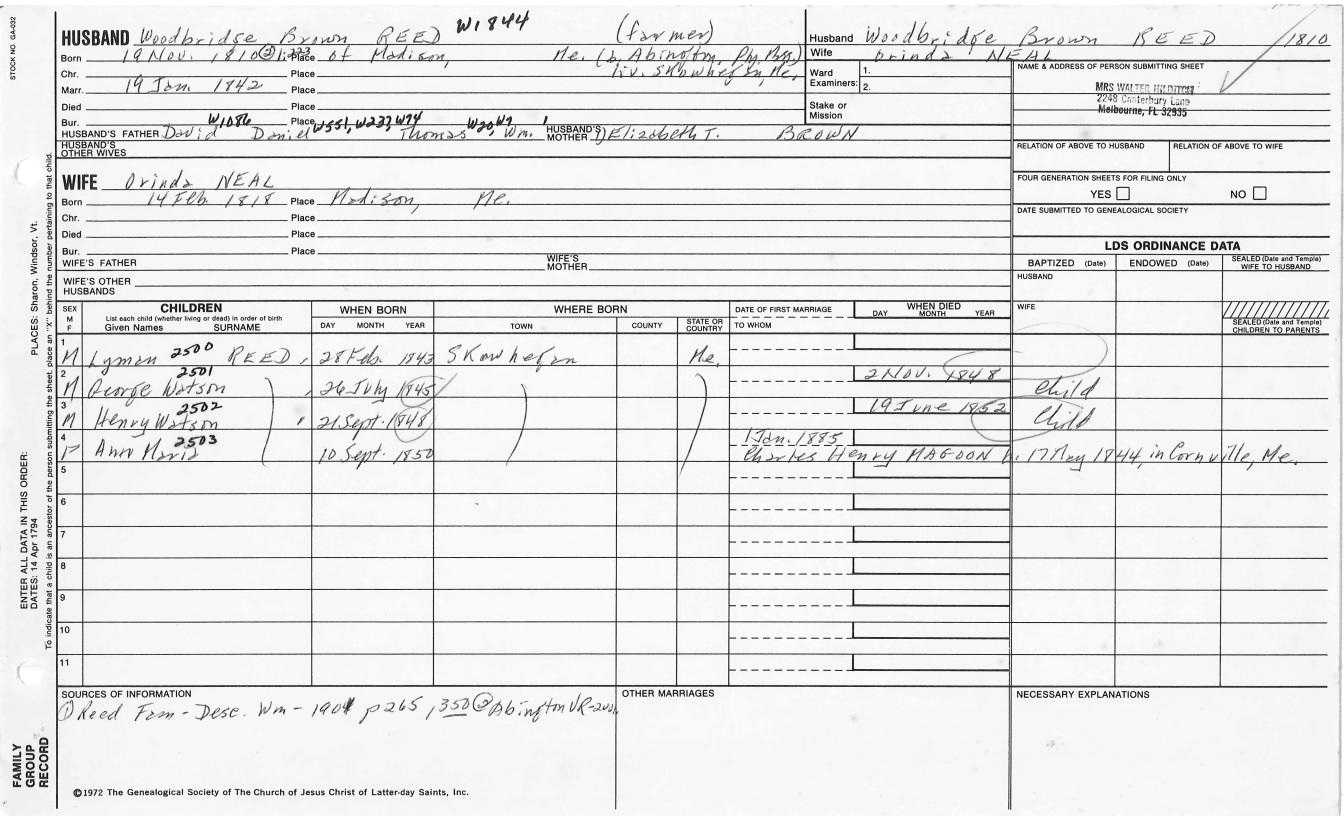 STOCK NO. GA-032
HUSBAND Woodbridge Brown REED W1844 (farmer)
Born 19 Nov. 1810 Place of Madison, Me. (b. Abington, Ply.
liv. Skowhegan, Me.
Chr. Place
Marr. 19 Jan. 1842 Place
Died Place
Bur. Place
W1086 W551, W237, W74 W20, W7
HUSBAND'S FATHER David Daniel Thomas Wm. HUSBAND'S MOTHER 1) Elizabeth T. BROWN
HUSBAND'S OTHER WIVES
Husband Woodbridge Brown REED 1810
Wife Orinda NEAL
Ward Examiners: 1.
2.
Stake or Mission
NAME & ADDRESS OF PERSON SUBMITTING SHEET
MRS WALTER HILDITCH
2248 Canterbury Lane
Melbourne, FL 32935
RELATION OF ABOVE TO HUSBAND RELATION OF ABOVE TO WIFE
FOUR GENERATION SHEETS FOR FILING ONLY
YES NO
DATE SUBMITTED TO GENEALOGICAL SOCIETY
WIFE Orinda NEAL
Born 14 Feb. 1818 Place Madison, Me.
Chr. Place
Died Place
Bur. Place
WIFE'S FATHER WIFE'S MOTHER
WIFE'S OTHER HUSBANDS
LDS ORDINANCE DATA
BAPTIZED (Date) ENDOWED (Date) SEALED (Date and Temple) WIFE TO HUSBAND
HUSBAND
WIFE
SEALED (Date and Temple) CHILDREN TO PARENTS
SEX M F
CHILDREN
List each child (whether living or dead) in order of birth
Given Names SURNAME
WHEN BORN
DAY MONTH YEAR
WHERE BORN
TOWN COUNTY STATE OR COUNTRY
DATE OF FIRST MARRIAGE
TO WHOM
WHEN DIED
DAY MONTH YEAR
1 M Lyman 2500 REED, 28 Feb. 1843 Skowhegan Me.
2 M George Watson 2501 26 July 1845 2 Nov. 1848 Child
3 M Henry Watson 2502 21 Sept. 1848 19 June 1852 Child
4 F Ann Maria 2503 10 Sept. 1850 1 Jan. 1885
Charles Henry MAGOON b. 17 May 1844, in Cornville, Me.
5
6
7
8
9
10
11
SOURCES OF INFORMATION
① Reed Fam - Desc. Wm - 1901 p265, 350 ② Abington VR-
OTHER MARRIAGES
NECESSARY EXPLANATIONS
©1972 The Genealogical Society of The Church of Jesus Christ of Latter-day Saints, Inc.
FAMILY GROUP RECORD
ENTER ALL DATA IN THIS ORDER:
DATES: 14 Apr 1794
PLACES: Sharon, Windsor, Vt.
To indicate that a child is an ancestor of the person submitting the sheet, place an "X" behind the number pertaining to that child.